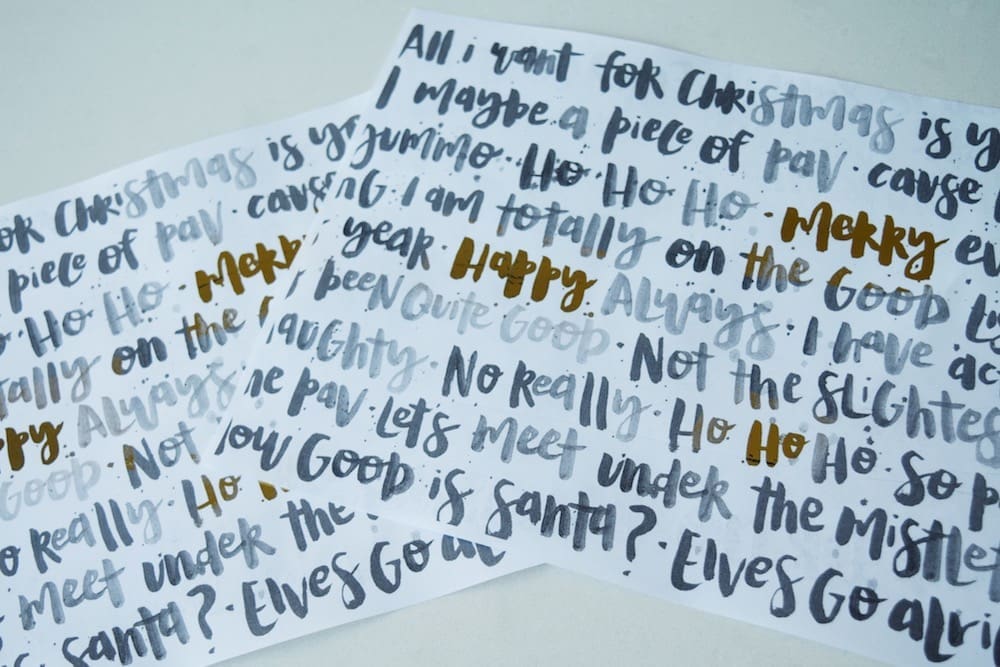 All i want for Christmas is y
I maybe a piece of pav · cause
yummo · Ho Ho Ho · Merry ev
nG · I am totally on the Good Li
year · Happy Always I have ac
been Quite Good · Not the slightes
aughty · No really · Ho Ho Ho · So p
he pav · Let's meet under the mistlet
Good is santa? · Elves Go alri
or Christmas is y
piece of pav · caus
Ho Ho · Merry
tally on the
ppy Always
Good · Not
o really · Ho
meet under the
santa? · Elves Go al